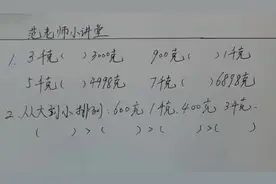 范老师小讲堂
1. 3千克( )3000克 900克( )1千克
5千克( )4998克 7千克( )6898克
2. 从大到小排列: 600克 1千克. 400克 3千克.
( ) > ( ) > ( ) > ( )